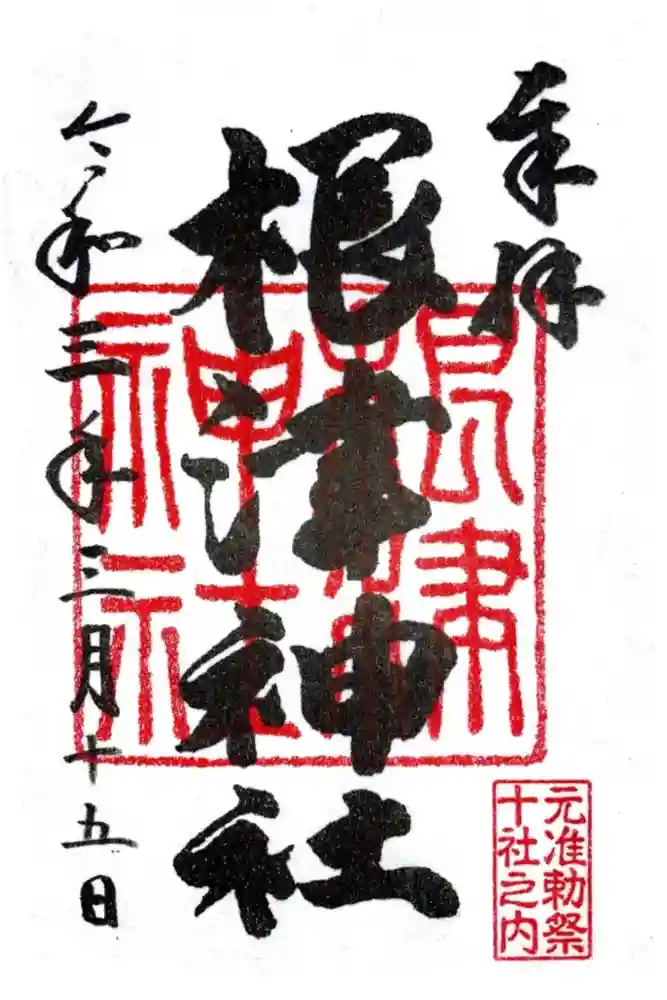 奉拝
根津神社
根津神社
令和三年三月十五日
元准勅祭
十社之内